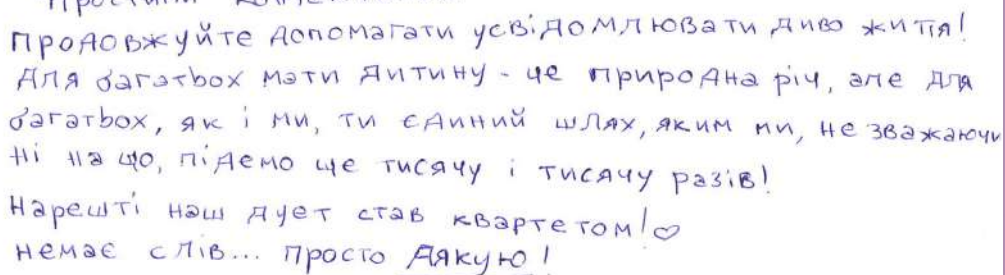 Продовжуйте допомагати усвідомлювати диво життя!
Для багатьох мати дитину - це природна річ, але для
багатьох, як і ми, ти єдиний шлях, яким ми, не зважаючи
ні на що, підемо ще тисячу і тисячу разів!
Нарешті наш дует став квартетом!♡
Немає слів... просто Дякую!